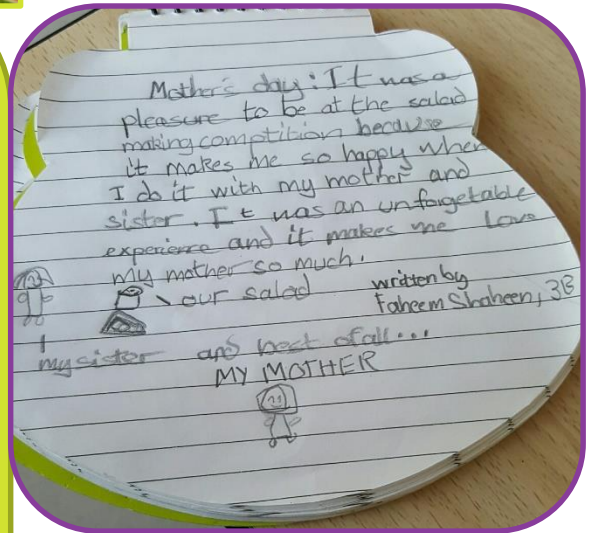 Mother's day: It was a
pleasure to be at the salad
making comptition because
it makes me so happy when
I do it with my mother and
sister. It was an unforgetable
experience and it makes me love
my mother so much.
our salad
written by
Faheem Shaheen, 3B
my sister and best of all...
MY MOTHER